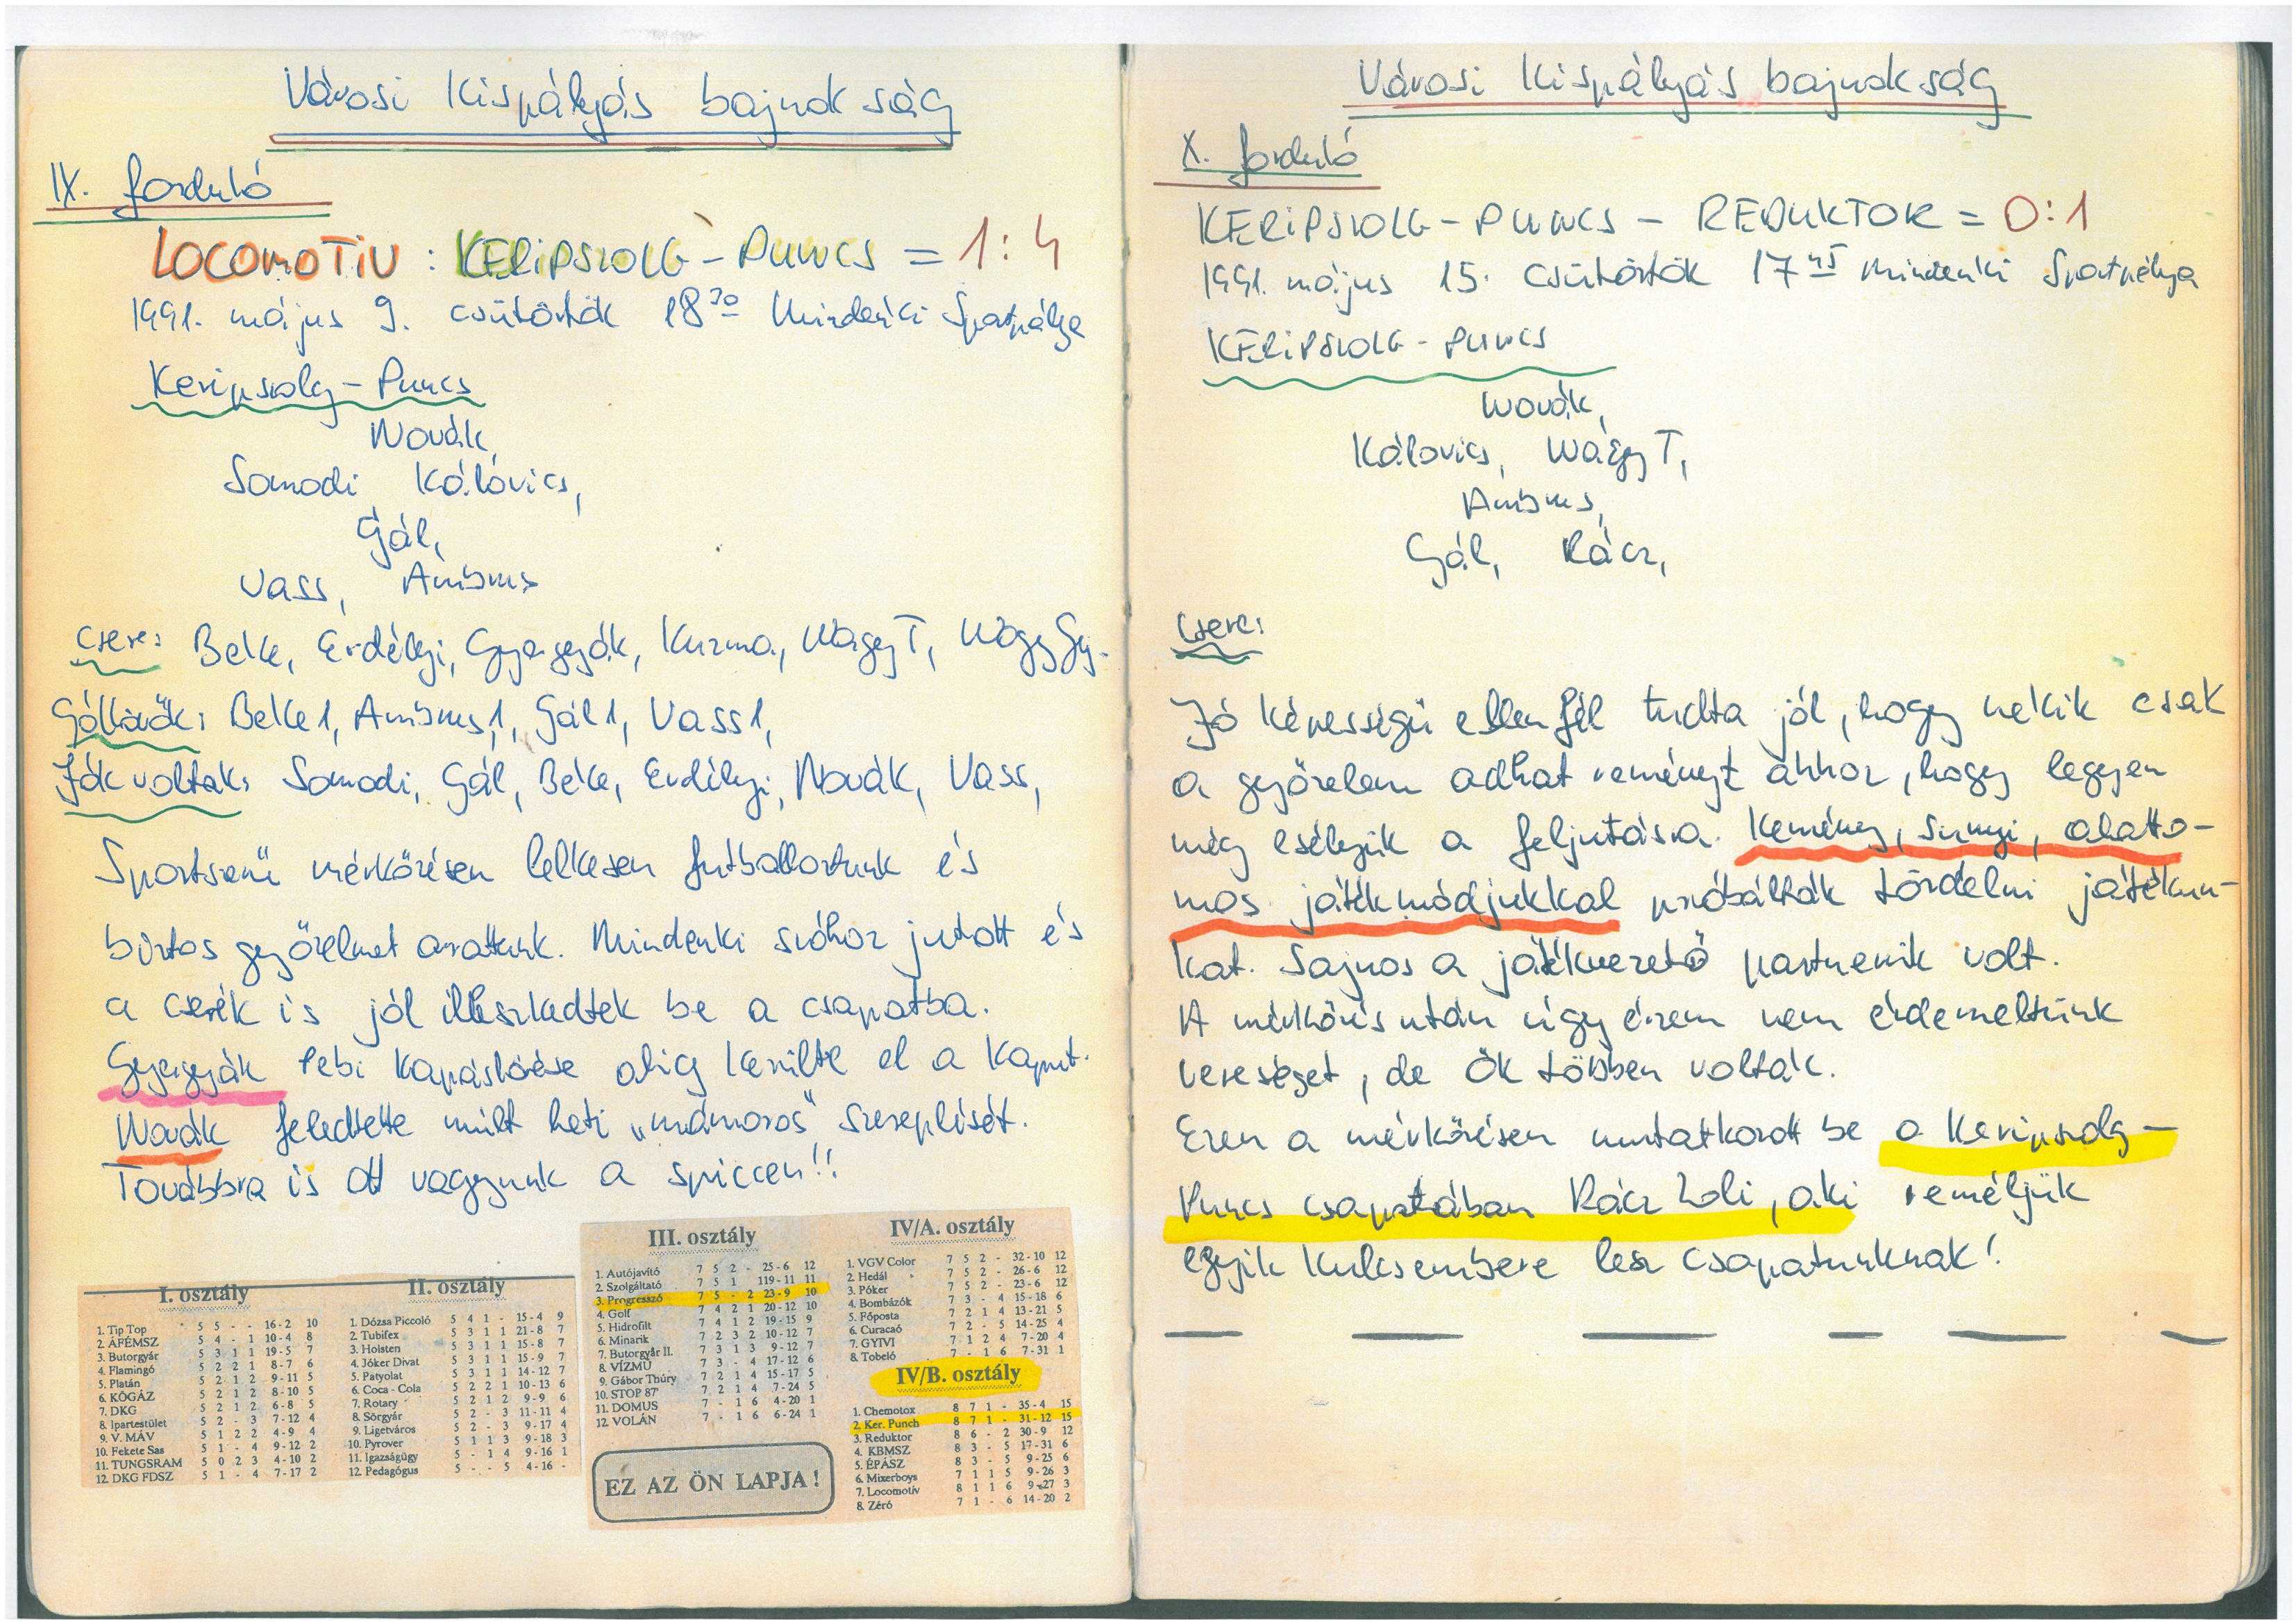 Városi Kispályás bajnokság
IX. forduló
LOCOMOTIV : KERIPSZOLG - PUNCS = 1:4
1991. május 9. csütörtök 18³⁰ Mindenki Sportpálya
Keripszolg - Puncs
Novák,
Somodi Kálovics,
Gál,
Vass, Ambrus
Csere: Belke, Erdélyi, Gyergyák, Kuzma, Nagy T, Nagy Gy.
Góllövők: Belke 1, Ambrus 1, Gál 1, Vass 1,
Jók voltak: Somodi, Gál, Belke, Erdélyi, Novák, Vass,
Sportszerű mérkőzésen lelkesen futballoztunk és
biztos győzelmet arattunk. Mindenki szóhoz jutott és
a cserék is jól illeszkedtek be a csapatba.
Gyergyák Pebi kapáslövése alig kerülte el a kaput.
Novák feledtette múlt heti „mámoros" szereplését.
Továbbra is ott vagyunk a spiccen!!
I. osztály
1. Tip Top 5 5 - - 16-2 10
2. ÁFÉMSZ 5 4 - 1 10-4 8
3. Butorgyár 5 3 1 1 19-5 7
4. Flamingó 5 2 2 1 8-7 6
5. Platán 5 2 1 2 9-11 5
6. KÖGÁZ 5 2 1 2 8-10 5
7. DKG 5 2 1 2 6-8 5
8. Ipartestület 5 2 - 3 7-12 4
9. V. MÁV 5 1 2 2 4-9 4
10. Fekete Sas 5 1 - 4 9-12 2
11. TUNGSRAM 5 0 2 3 4-10 2
12. DKG FDSZ 5 1 - 4 7-17 2
II. osztály
1. Dózsa Piccoló 5 4 1 - 15-4 9
2. Tubifex 5 3 1 1 21-8 7
3. Holsten 5 3 1 1 15-8 7
4. Jóker Divat 5 3 1 1 15-9 7
5. Patyolat 5 3 1 1 14-12 7
6. Coca - Cola 5 2 2 1 10-13 6
7. Rotary 5 2 1 2 9-9 6
8. Sörgyár 5 2 - 3 11-11 4
9. Ligetváros 5 2 - 3 9-17 4
10. Pyrover 5 1 1 3 9-18 3
11. Igazságügy 5 - 1 4 9-16 1
12. Pedagógus 5 - - 5 4-16 -
III. osztály
1. Autójavító 7 5 2 - 25-6 12
2. Szolgáltató 7 5 1 119-11 11
3. Progresszó 7 5 - 2 23-9 10
4. Golf 7 4 2 1 20-12 10
5. Hidrofilt 7 4 1 2 19-15 9
6. Minarik 7 2 3 2 10-12 7
7. Butorgyár II. 7 3 1 3 9-12 7
8. VÍZMŰ 7 3 - 4 17-12 6
9. Gábor Thúry 7 2 1 4 15-17 5
10. STOP 87' 7 2 1 4 7-24 5
11. DOMUS 7 - 1 6 4-20 1
12. VOLÁN 7 - 1 6 6-24 1
EZ AZ ÖN LAPJA!
IV/A. osztály
1. VGV Color 7 5 2 - 32-10 12
2. Hedál 7 5 2 - 26-6 12
3. Póker 7 5 2 - 23-6 12
4. Bombázók 7 3 - 4 15-18 6
5. Főposta 7 2 1 4 13-21 5
6. Curacaó 7 2 - 5 14-25 4
7. GYIVI 7 1 2 4 7-20 4
8. Tobeló 7 - 1 6 7-31 1
IV/B. osztály
1. Chemotox 8 7 1 - 35-4 15
2. Ker. Punch 8 7 1 - 31-12 15
3. Reduktor 8 6 - 2 30-9 12
4. KBMSZ 8 3 - 5 17-31 6
5. ÉPÁSZ 8 3 - 5 9-25 6
6. Mixerboys 7 1 1 5 9-26 3
7. Locomotív 8 1 1 6 9-27 3
8. Zéró 7 1 - 6 14-20 2
Városi Kispályás bajnokság
X. forduló
KERIPSZOLG - PUNCS - REDUKTOR = 0:1
1991. május 15. csütörtök 17⁴⁵ Mindenki Sportpálya
KERIPSZOLG - PUNCS
Novák,
Kálovics, Nagy T,
Ambrus,
Gál, Rácz,
Csere:
Jó képességű ellenfél tudta jól, hogy nekik csak
a győzelem adhat reményt ahhoz, hogy legyen
még esélyük a feljutásra. Kemény, sunyi, alatto-
mos játékmódjukkal próbálták tördelni játékun-
kat. Sajnos a játékvezető partnerük volt.
A mérkőzés után úgy érzem nem érdemeltünk
vereséget, de Ők többen voltak.
Ezen a mérkőzésen mutatkozott be a Keripszolg -
Puncs csapatában Rácz Zoli, aki reméljük
egyik kulcsembere lesz csapatunknak!